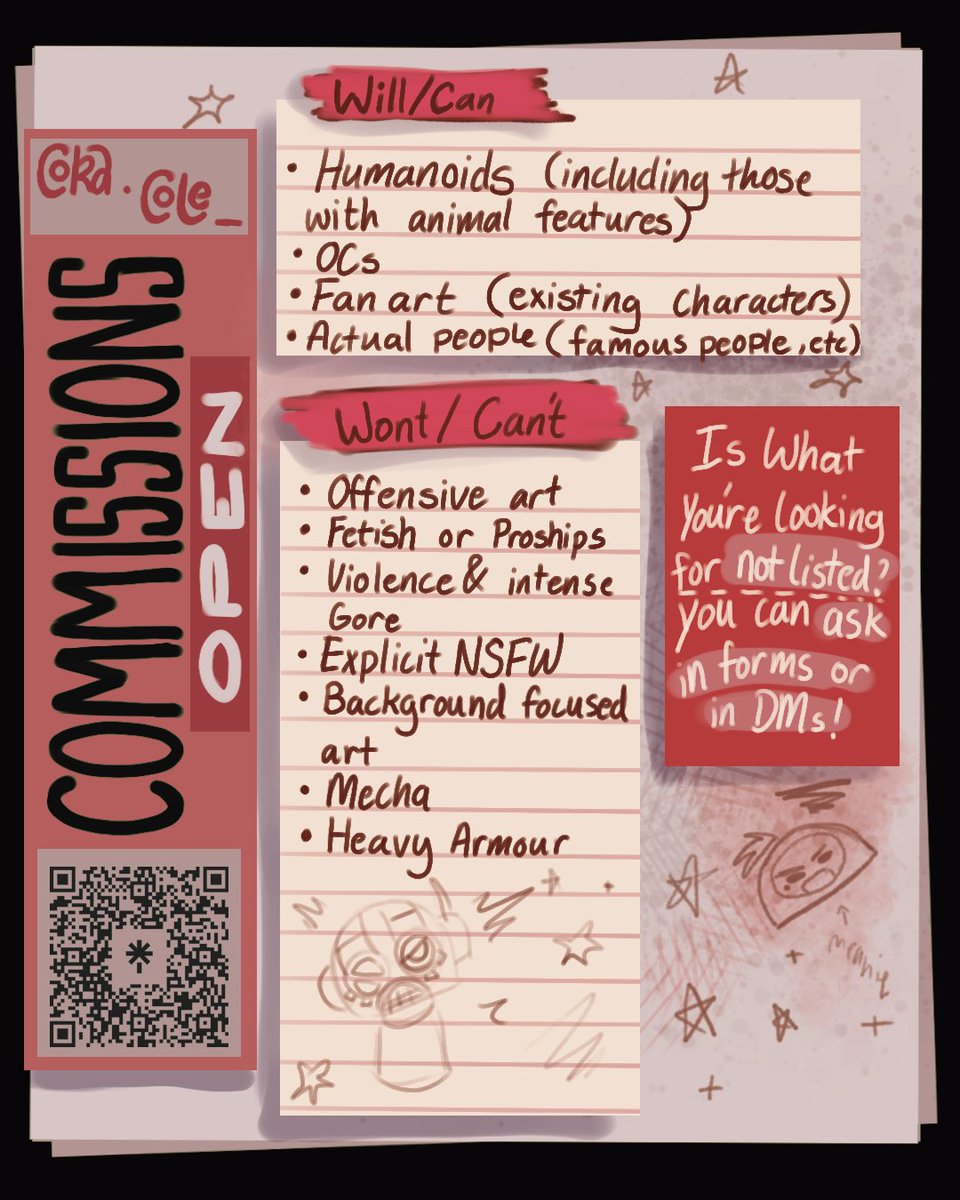 Coka.Cole_
COMMISSIONS
OPEN
Will/Can
• Humanoids (including those
with animal features)
• OCs
• Fan art (existing characters)
• Actual people (famous people, etc)
Wont/Can't
• Offensive art
• Fetish or Proships
• Violence & intense
Gore
• Explicit NSFW
• Background focused
art
• Mecha
• Heavy Armour
Is What
You're looking
for not listed?
you can ask
in forms or
in DMs!